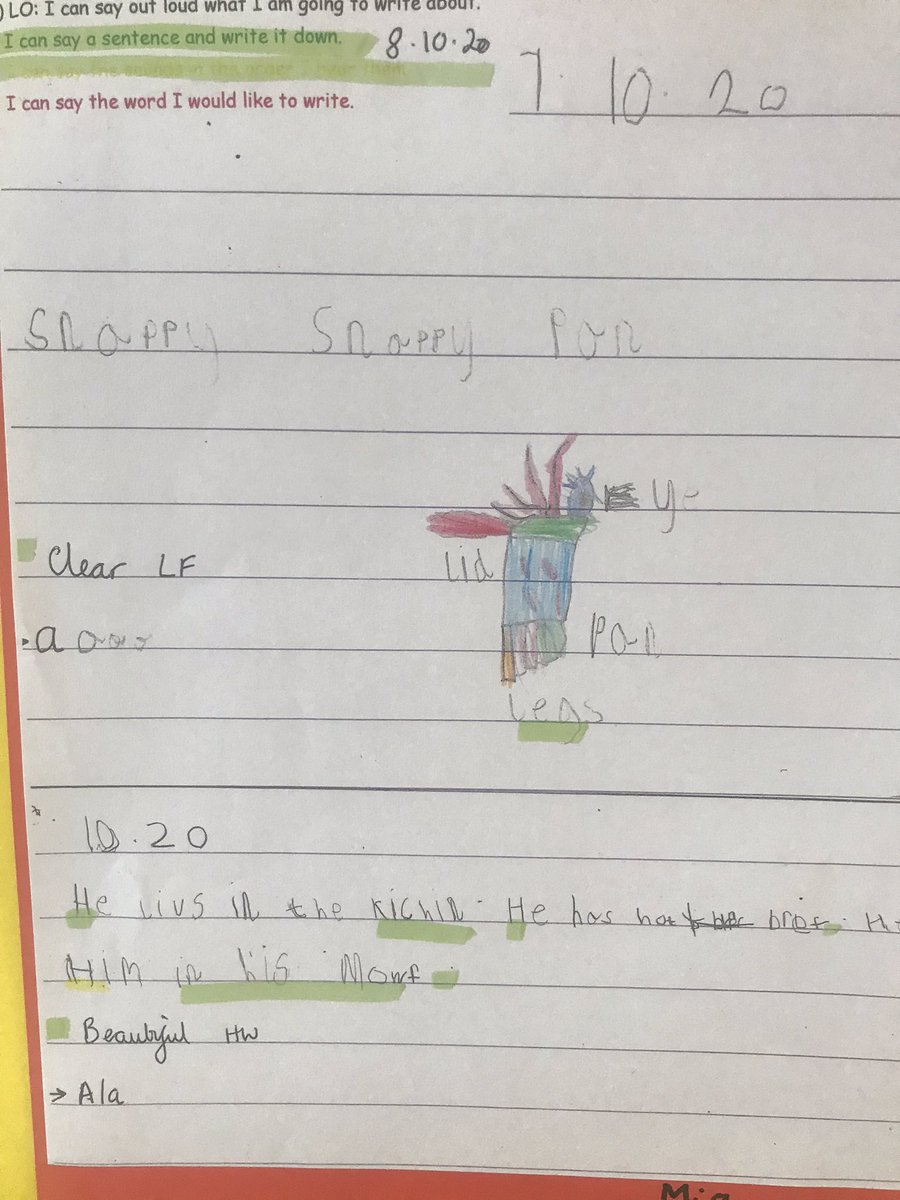 LO: I can say out loud what I am going to write about.
I can say a sentence and write it down. 8.10.20
I can say the word I would like to write.
7.10.20
Snappy Snappy Pan
Clear LF
Lid
a a a a a
Pan
Legs
10.20
He livs in the kichin. He has hot
HIM in his Mowf.
Beautiful HW
→ A/a